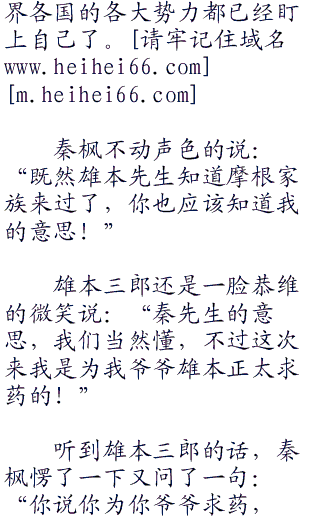 界各国的各大势力都已经盯
上自己了。[请牢记住域名
www.heihei66.com]
[m.heihei66.com]
秦枫不动声色的说：
“既然雄本先生知道摩根家
族来过了，你也应该知道我
的意思！”
雄本三郎还是一脸恭维
的微笑说：“秦先生的意
思，我们当然懂，不过这次
来我是为我爷爷雄本正太求
药的！”
听到雄本三郎的话，秦
枫愣了一下又问了一句：
“你说你为你爷爷求药，